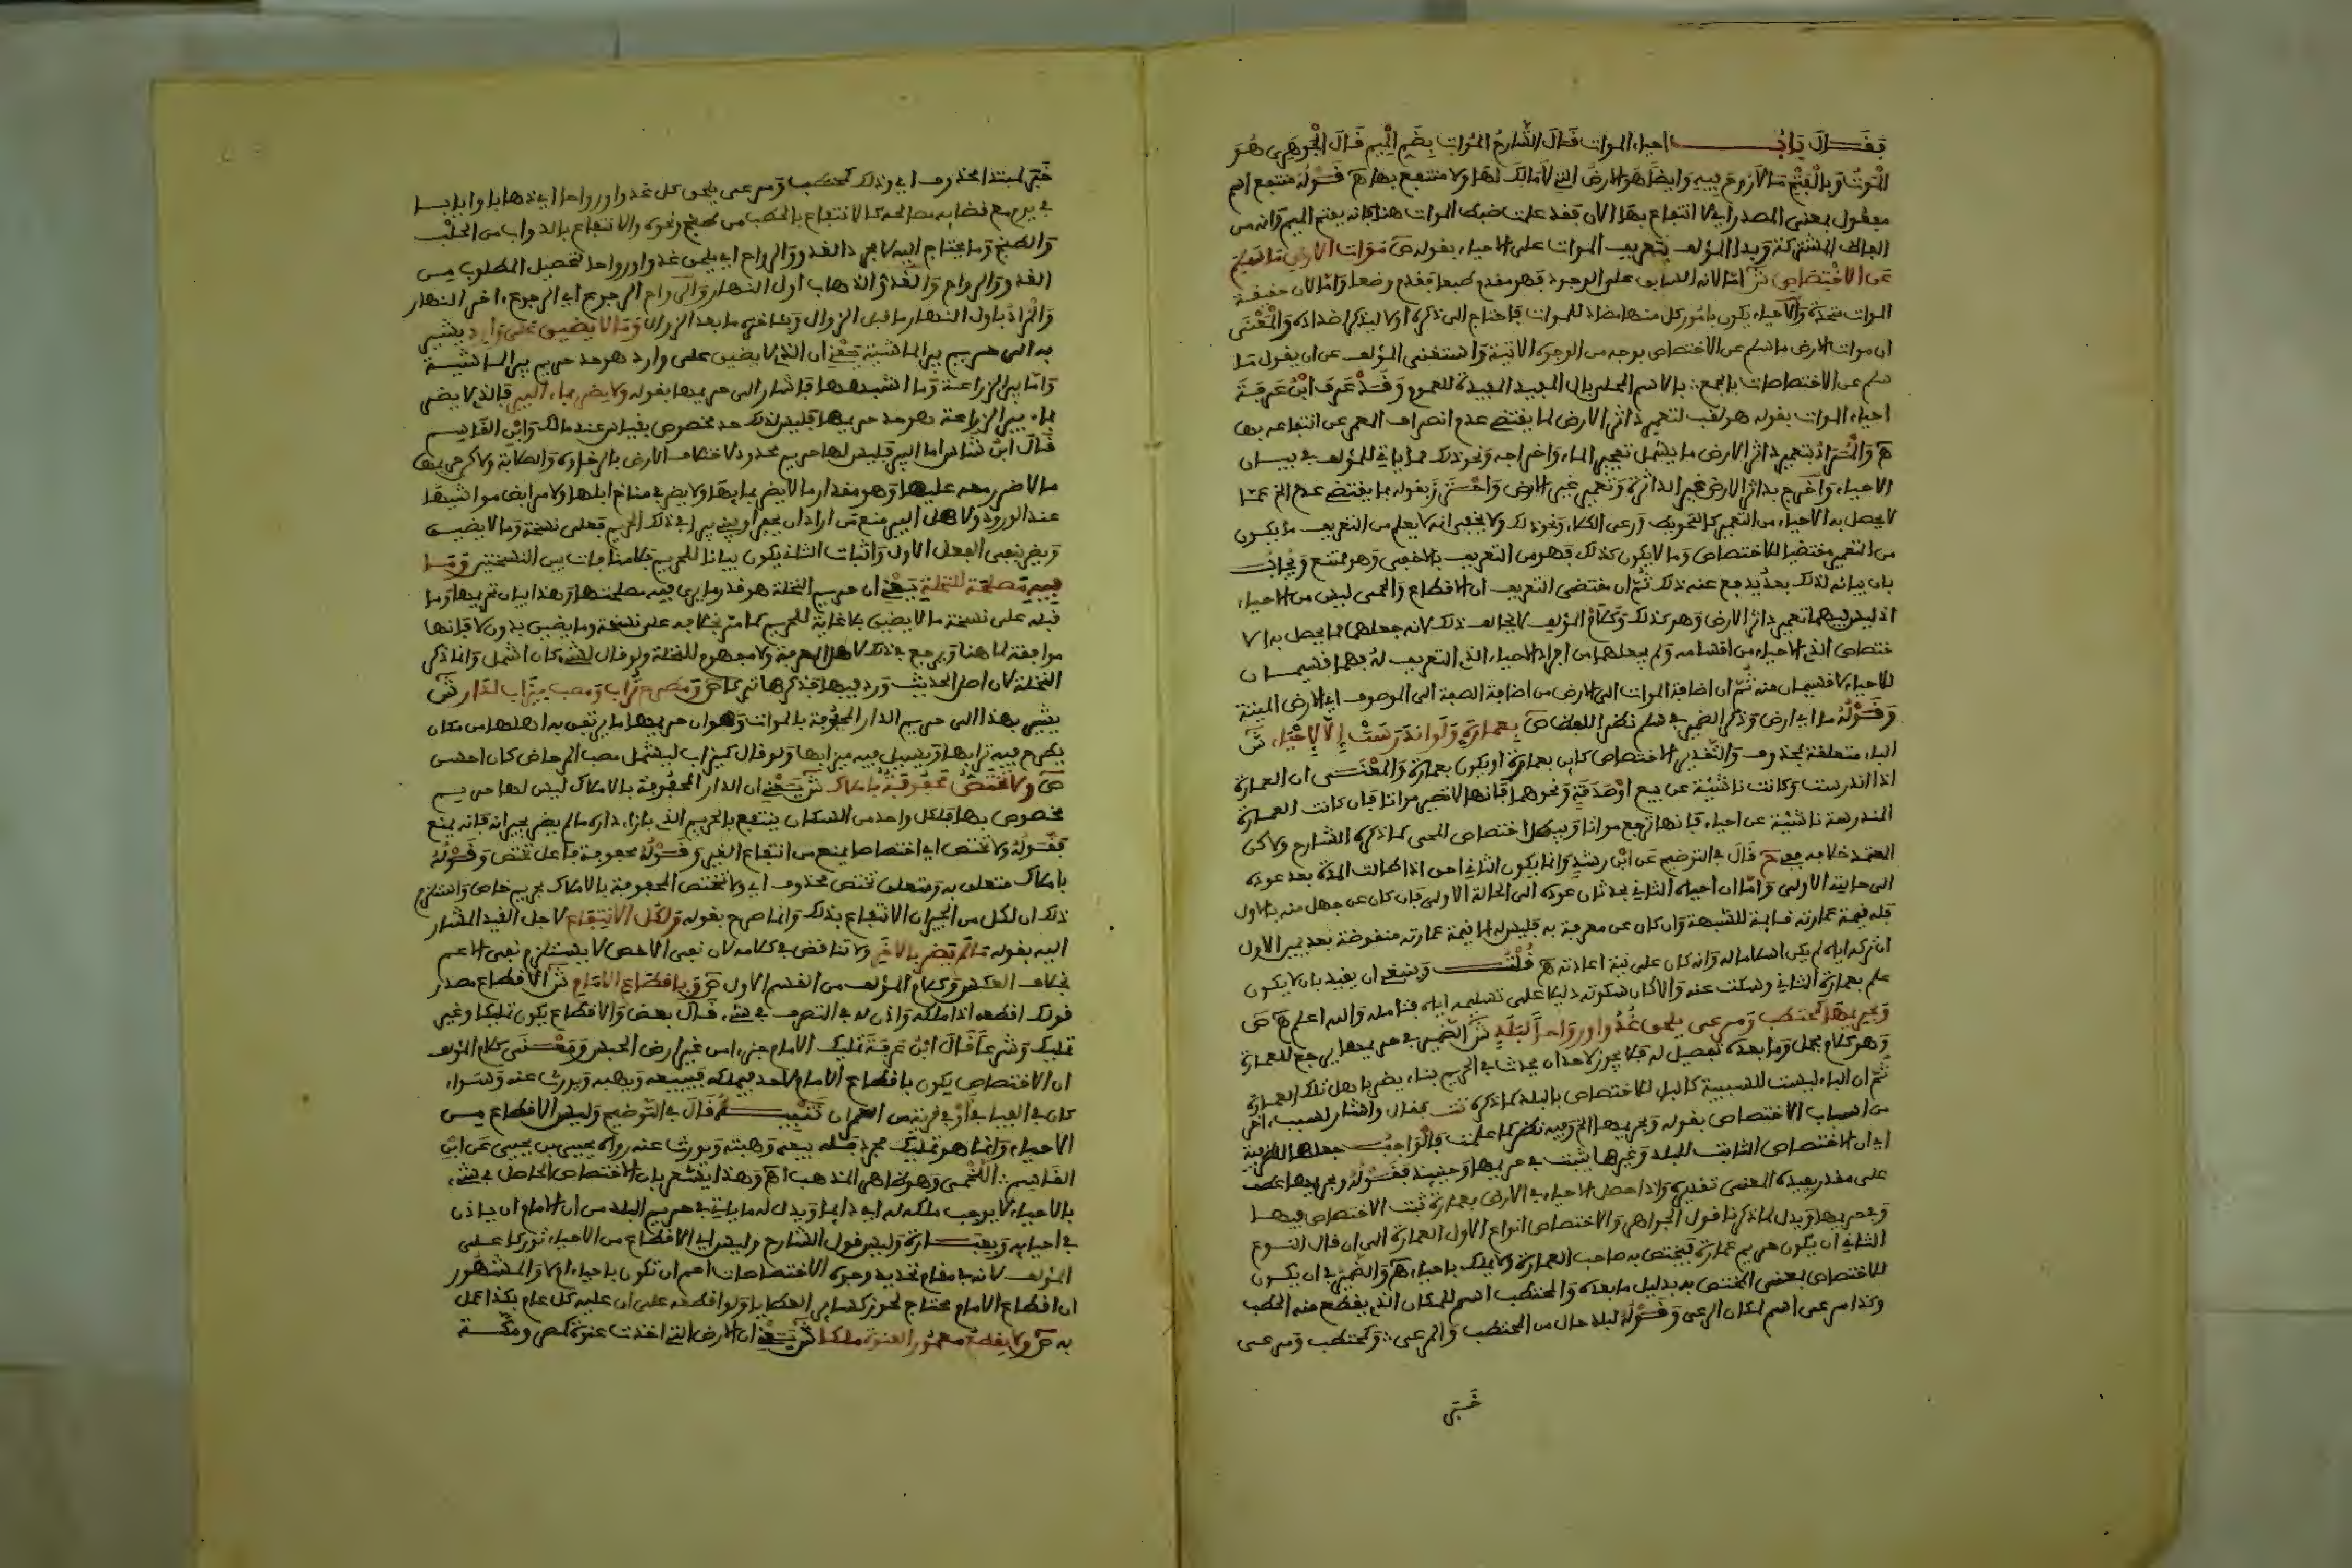 فقال باب احياء الموات قال الشارح الموات بضم الميم قال الجوهري هو
الموت وبالفتح ما لا روح فيه وايضا هو الارض التي لا مالك لها ولا منتفع بها اهـ قوله منتفع اسم
مفعول بمعنى المصدر اي لا انتفاع بها الان فقد علمت ضبط الموات هنا فانه بفتح الميم وانه من
الفاظ المشتركة وبدا المؤلف بتعريف الموات على الاحياء بقوله ص موات الارض ما سلم
عن الاختصاص ش اما لانه السابق على الوجود فهو مقدم طبعا فقدم وضعا واما لان حقيقة
الموات متحدة والاحياء يكون بامور كل منها مضاد للموات فاحتاج الى ذكره اولا ليذكر اضداده والمعنى
ان موات الارض ما سلم عن الاختصاص بوجه من الوجوه الاتية واستغنى المؤلف عن ان يقول ما
سلم عن الاختصاصات بالجمع بالاسم المحلى بال الجنسية المفيدة للعموم وقد عرف ابن عرفة
احياء الموات بقوله هو لقب لتعمير داثر الارض لما يقتضي عدم انصراف المعمر عن انتفاعه بها
اهـ والمراد بتعمير داثر الارض ما يشمل تفجير الماء واخراجه ونحو ذلك مما ياتي للمؤلف في بيان
الاحياء واخرج بداثر الارض غير الداثرة وتعمير غير الارض واحترز بقوله بما يقتضي عدم الخ عما
لا يحصل به الاحياء من التعمير كالتحويط ورعي الكلاء ونحو ذلك ولا يخفى انه لا يعلم من التعريف ما يكون
من التعمير مقتضيا للاختصاص وما لا يكون كذلك فهو من التعريف بالاخفى وهو ممتنع ويجاب
بان بيانه لذلك بعد يدفع عنه ذلك ثم ان مقتضى التعريف ان الاقطاع والحمى ليس من الاحياء
اذ ليس فيهما تعمير داثر الارض وهو كذلك وكلام المؤلف لا يخالف ذلك لانه جعلهما مما يحصل به الا
ختصاص الذي الاحياء من اقسامه ولم يجعلهما من افراد الاحياء الذي التعريف له فهما قسيمان
للاحياء لا قسيمان منه ثم ان اضافة الموات الى الارض من اضافة الصفة الى الموصوف اي الارض الميتة
وقوله ما اي ارض وذكر الضمير في سلم نظرا للفظ ما ص بعمارة ولو اندرست الا لاحياء ش
الباء متعلقة بمحذوف والتقدير الاختصاص كاين بعمارة او يكون بعمارة والمعنى ان العمارة
اذا اندرست وكانت ناشئة عن بيع او صدقة ونحوهما فانها لا تصير مواتا فان كانت العمارة
المندرسة ناشئة عن احياء فانها ترجع مواتا ويبطل اختصاص المحيي كما ذكره الشارح ولاكن
المعتمد خلافه قال في التوضيح عن ابن رشد وانما يكون الثاني احق اذا طالت المدة بعد عوده
الى حالته الاولى واما ان احياه الثاني بحدثان عوده الى الحالة الاولى فان كان عن جهل منه بالاول
فله قيمة عمارته قايمة للشبهة وان كان عن معرفة به فليس له الا قيمة عمارته منقوضة بعد يمين الاول
ان تركه اياه لم يكن اسلاما له وانه كان على نية اعادته اهـ قلت وينبغي ان يقيد بان لا يكون
علم بعمارة الثاني وسكت عنه والا كان سكوته دليلا على تسليمه اياه فتامله والله اعلم اهـ ص
وبحريمها كمحتطب ومرعى يلحق غدوا ورواحا لبلد ش الضمير في حريمها يرجع للعمارة
وهو كلام مجمل وما بعده تفصيل له فلا يجوز لاحد ان يحدث في الحريم بناء يضر باهل تلك العمارة
ثم ان الباء ليست للسببية كالباء للاختصاص بالبلد كما ذكره تت فقال واشار لسبب اخر
من اسباب الاختصاص بقوله وبحريمها الخ وفيه نظر كما علمت فالواجب جعلها للظرفية
اي ان الاختصاص الثابت للبلد وغيرها يثبت في حريمها وحينيذ فقوله وبحريمها عطف
على مقدر يفيده المعنى تقديره واذا حصل الاحياء في الارض بعمارة ثبت الاختصاص فيها
وفي حريمها ويدل لما ذكرنا قول الجواهر والاختصاص انواع الاول العمارة الى ان قال النوع
الثاني ان يكون حريم عمارة فيختص به صاحب العمارة ولا يملك باحياء اهـ والضمير في ان يكون
للاختصاص بمعنى المختص به بدليل ما بعده والمحتطب اسم للمكان الذي يقطع منه الحطب
وكذا مرعى اسم لمكان الرعي وقوله لبلد حال من المحتطب والمرعى وكمحتطب ومرعى
خبر
خبر لمبتدا محذوف اي وذلك كمحتطب ومرعى يلحق كل غدوا ورواحا اي ذهابا وايابا
في يوم مع قضايه مصالحه كالانتفاع بالحطب من طبخ ونحوه والانتفاع بالدواب من الحلب
والطبخ وما يحتاج اليه لا مجرد الغدو والرواح اي يلحق غدوا ورواحا لتحصيل المطلوب من
الغدو والرواح والغدو الذهاب اول النهار والرواح الرجوع اي الرجوع اخر النهار
والمراد باول النهار ما قبل الزوال وباخره ما بعد الزوال وما لا يضيق على وارد يشير
به الى حريم بير الماشية يعني ان الذي لا يضيق على وارد هو حد حريم بير الماشية
واما بير الزراعة وما اشبهها فاشار الى حريمها بقوله ولا يضر بماء البير فالذي لا يضر
بماء بير الزراعة هو حد حريمها فليس لذلك حد مخصوص بقياس عند مالك وابن القاسم
قال ابن شاس اما البير فليس لها حريم محدود لاختلاف الارض بالرخاوة والصلابة ولاكن حريمها
ما لا ضرر معه عليها وهو مقدار ما لا يضر بمايها ولا يضر في مناخ ابلها ولا مرابض مواشيها
عند الورود ولاهل البير منع من اراد ان يحفر او يبني بيرا في ذلك الحريم فعلى نسخة وما لا يضيق
ويضر بنفي الفعل الاول واثبات الثاني يكون بيانا للحريم فلا منافات بين النسختين وما
فيه مصلحة لنخلة يعني ان حريم النخلة هو قدر ما يرى فيه مصلحتها وهذا بيان حريمها وما
قبله على نسخة ما لا يضيق بلا غاية للحريم كما مر بخلافه على نسخة وما يضيق بدون لا فانها
موافقة لما هنا ويرجع في ذلك لاهل المعرفة ولا مفهوم للنخلة ولو قال لشجر كان اشمل وانما ذكر
النخلة لان اصل الحديث ورد فيها فذكرها تبركا ص ومطرح تراب ومصب ميزاب لدار ش
يشير بهذا الى حريم الدار المحفوفة بالموات وهو ان حريمها ما يرتفق به اهلها من مكان
يطرح فيه ترابها ويسيل فيه ميزابها ولو قال كميزاب ليشمل مصب المرحاض كان احسن
ص ولا تختص محفوفة باملاك ش يعني ان الدار المحفوفة بالاملاك ليس لها حريم
مخصوص بها فلكل واحد من السكان ينتفع بالحريم الذي بازاء داره ما لم يضر بجيرانه فانه يمنع
فقوله ولا تختص اي اختصاصا يمنع من انتفاع الغير وقوله محفوفة فاعل تختص وقوله
باملاك متعلق به ومتعلق تختص محذوف اي ولا تختص المحفوفة بالاملاك بحريم خاص واستلزم
ذلك ان لكل من الجيران الانتفاع بذلك وانما صرح بقوله ولكل الانتفاع لاجل القيد المشار
اليه بقوله ما لم يضر بالاخر ولا تناقض في كلامه لان نفي الاخص لا يستلزم نفي الاعم
بخلاف العكس وكلام المؤلف من القسم الاول ص وباقطاع الامام ش الاقطاع مصدر
قولك اقطعه اذا ملكه واذن له في التصرف في شيء قال بعض والاقطاع يكون تمليكا وغير
تمليك وشرعا قال ابن عرفة تمليك الامام جزءا من غير ارض الحبس ومعنى كلام المؤلف
ان الاختصاص يكون باقطاع الامام لاحد فيملكه فيبيعه ويهبه ويورث عنه وسواء
كان في الفيافي او في قرية من العمران تنبيه قال في التوضيح وليس الاقطاع من
الاحياء وانما هو تمليك مجرد فله بيعه وهبته ويورث عنه رواه يحيى بن يحيى عن ابن
القاسم اللخمي وهو ظاهر المذهب اهـ وهذا يشعر بان الاختصاص الحاصل في شيء
بالاحياء لا يوجب ملكه له اي دايما ويدل له ما ياتي في حريم البلد من ان الامام ان ياذن
في احيايه وبعبارة وليس قول الشارح وليس اي الاقطاع من الاحياء توركا على
المؤلف لانه في مقام تحديد وجوه الاختصاصات اعم ان تكون باحياء ام لا والمشهور
ان اقطاع الامام محتاج لحوز كساير العطايا ولو اقطعه على ان عليه كل عام بكذا عمل
به ص ولا يقطع معمور العنوة ملكا ش يعني ان الارض التي اخذت عنوة كمصر ومكة